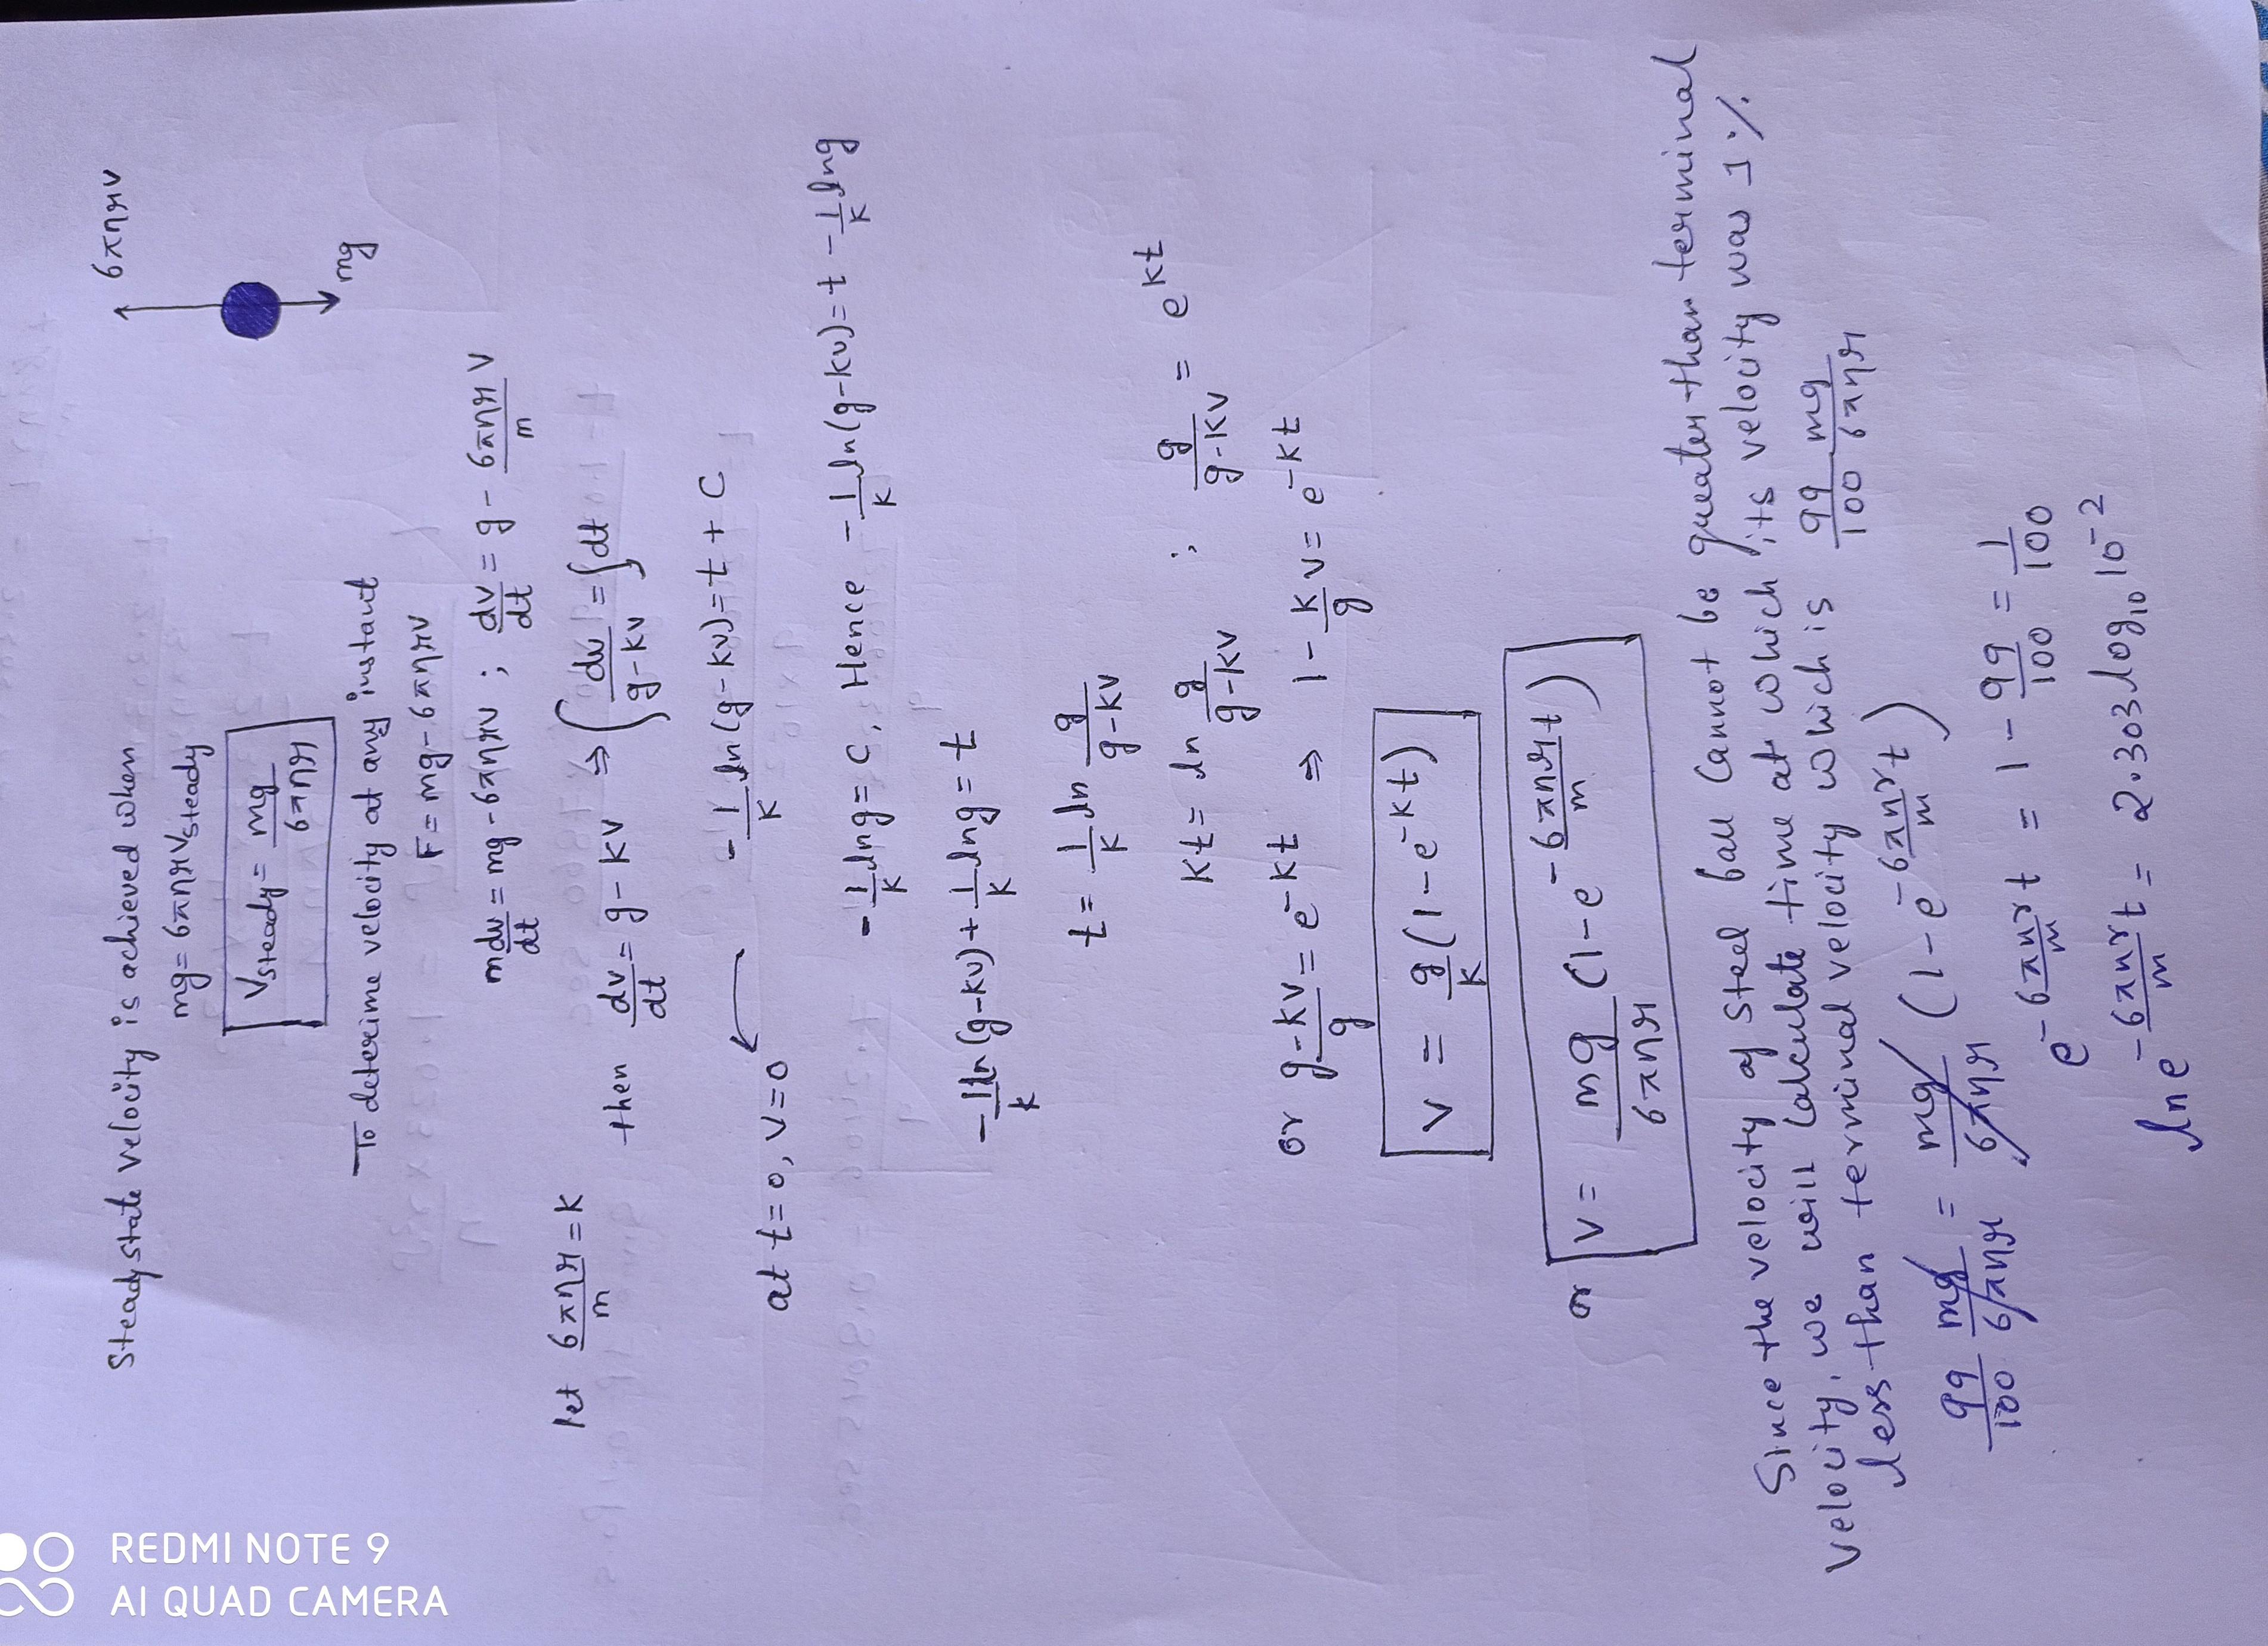 6πηrv
mg
Steady state velocity is achieved when
mg = 6πηrv_steady
v_steady = mg/6πηr
To deterime velocity at any instant
F = mg - 6πηrv
m dv/dt = mg - 6πηrv ; dv/dt = g - 6πηr v/m
let 6πηr/m = K then dv/dt = g - KV ⇒ ∫ dv/g-kv = ∫dt
-1/K ln(g-kv) = t + C
at t=0, v=0
-1/K ln g = C, Hence -1/K ln(g-kv) = t - 1/K ln g
-1/K ln(g-kv) + 1/K ln g = t
t = 1/K ln g/g-kv
Kt = ln g/g-kv ; g/g-kv = e^kt
or g-kv/g = e^-kt ⇒ 1 - K/g v = e^-kt
V = g/K (1-e^-kt)
or V = mg/6πηr (1-e^-6πηr/m t)
Since the velocity of steel ball cannot be greater than terminal
velocity, we will calculate time at which its velocity was 1%
less than terminal velocity which is 99/100 mg/6πηr
99/100 mg/6πηr = mg/6πηr (1-e^-6πηr/m t)
e^-6πηr/m t = 1 - 99/100 = 1/100
ln e^-6πηr/m t = 2.303 log₁₀ 10^-2
REDMI NOTE 9
AI QUAD CAMERA